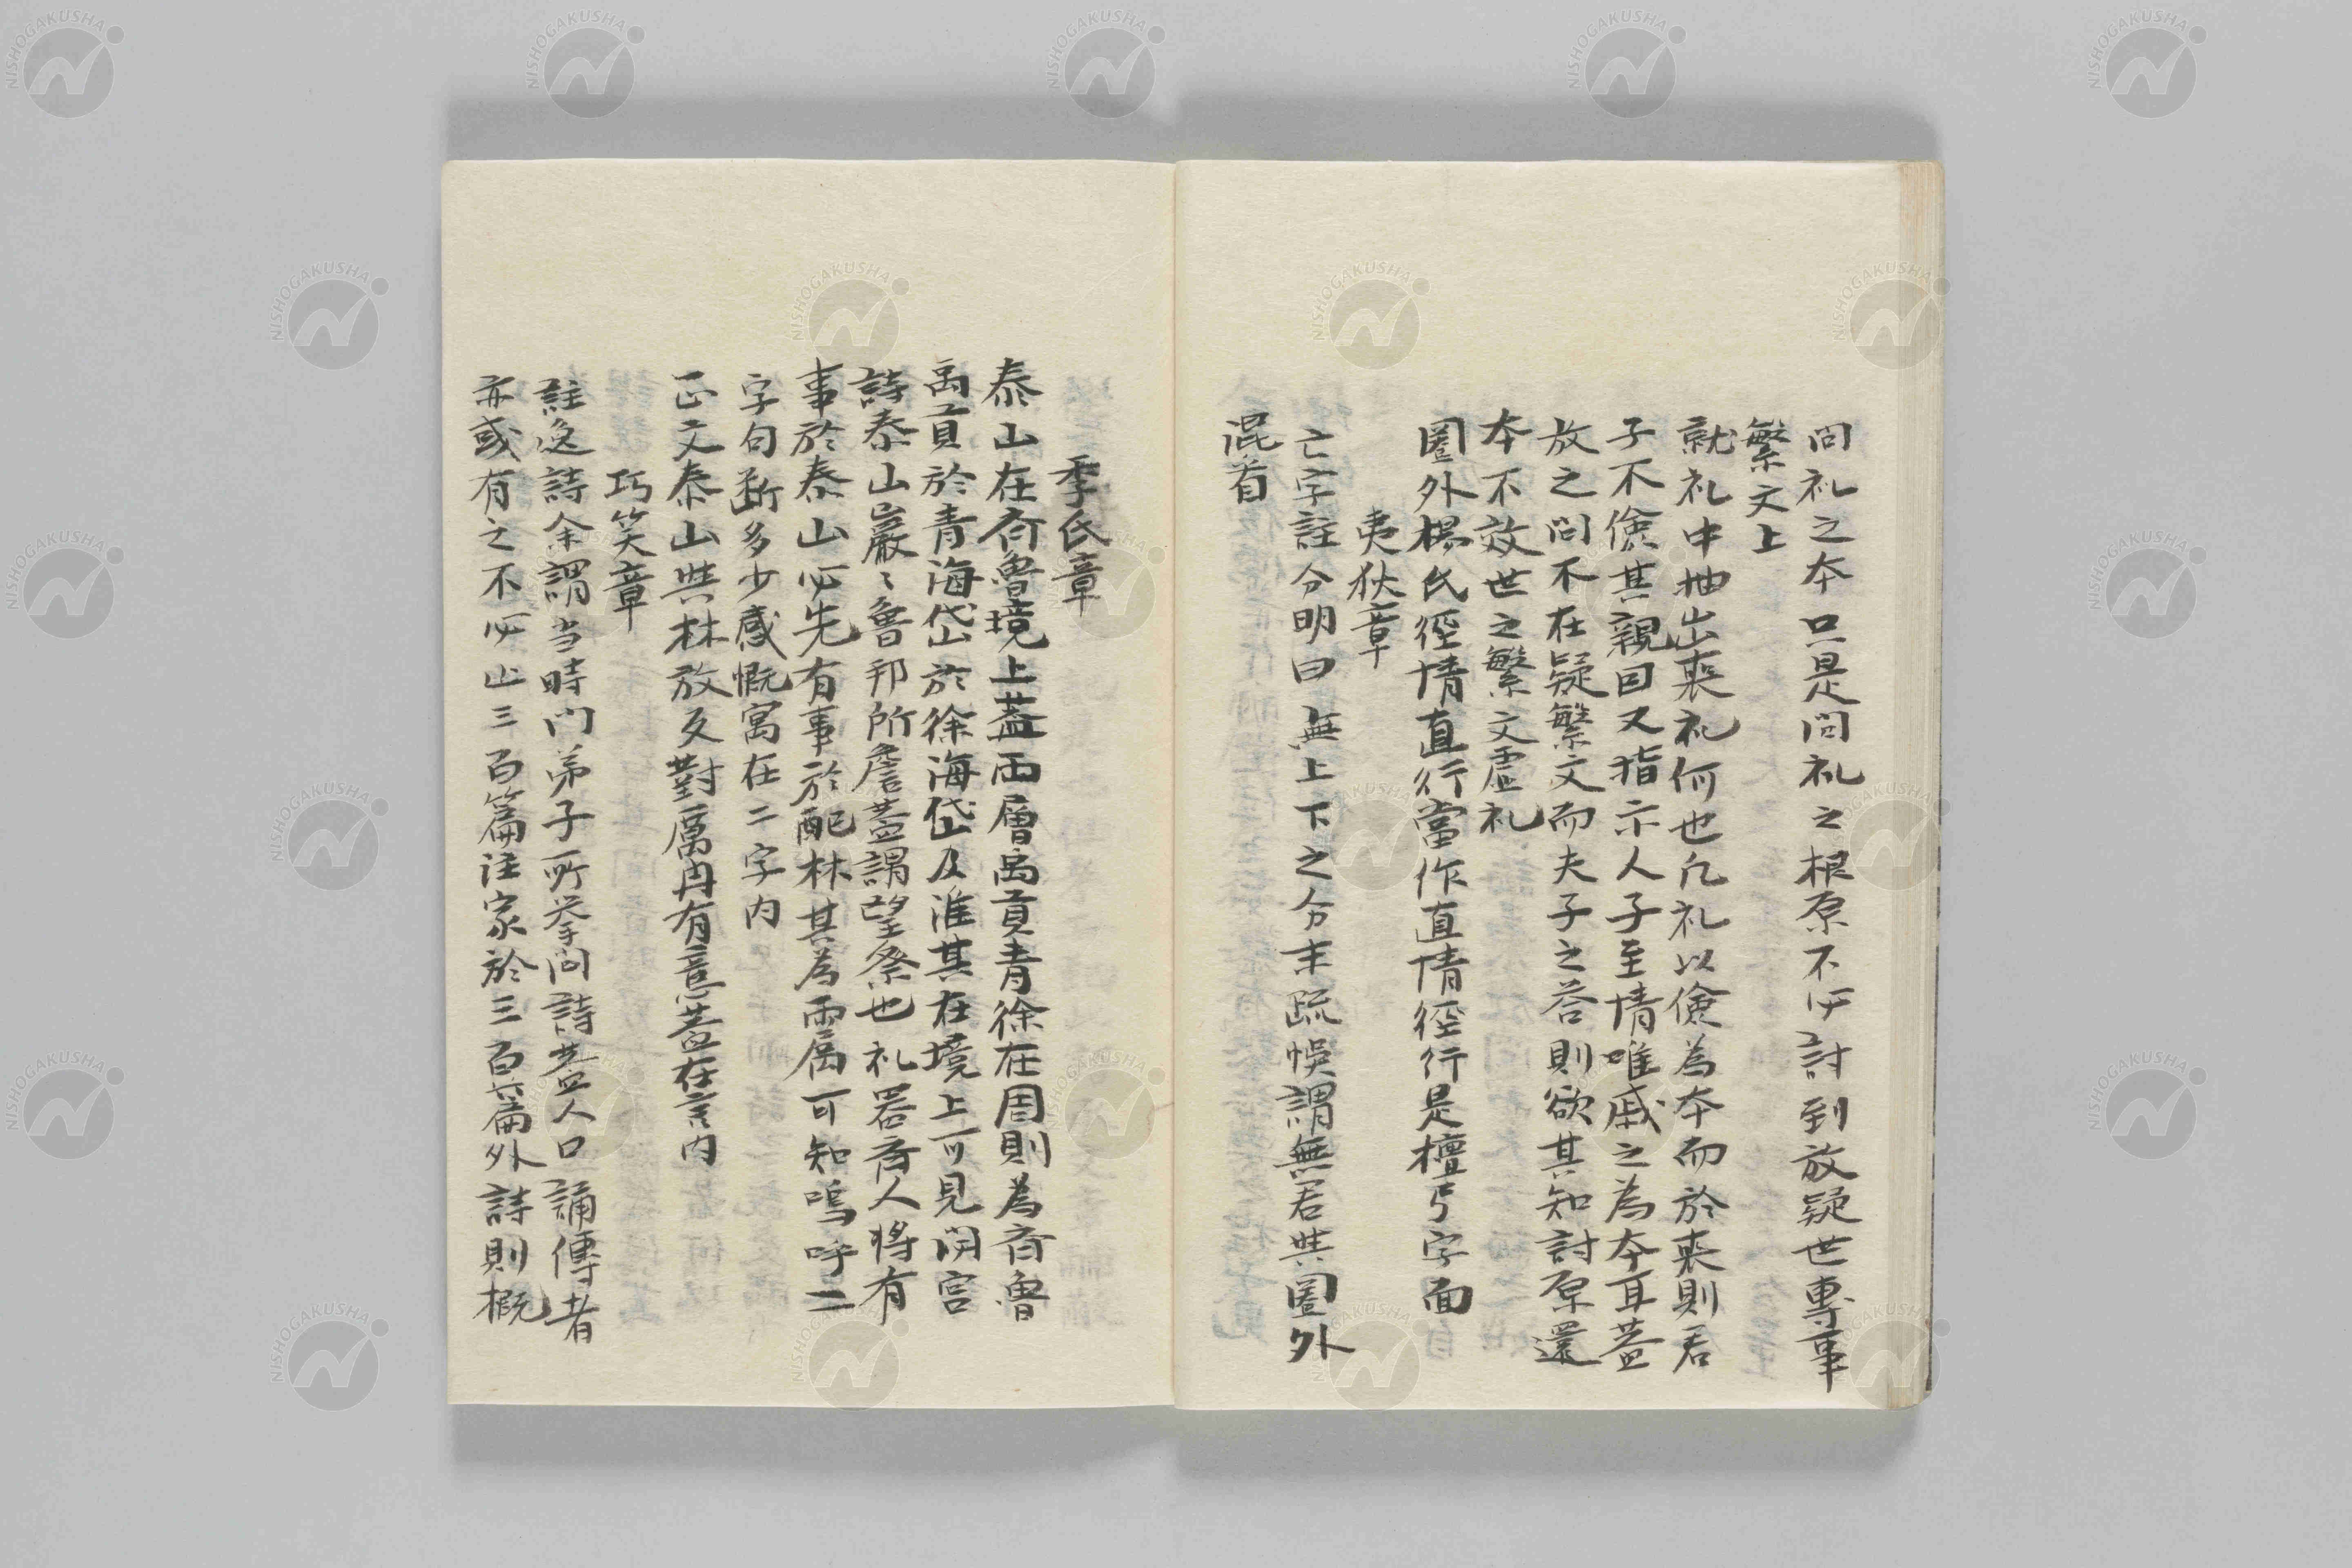 問礼之本只是問礼之根原不必討到放疑世專事
繁文上
就礼中抽出喪礼何也凡礼以儉為本而於喪則君
子不儉其親因又指示人子至情唯戚之為本耳蓋
放之問不在疑繁文而夫子之荅則欲其知討原還
本不效世之繁文虚礼
圏外楊氏徑情直行當作直情徑行是檀弓字面
夷狄章
亡字註分明曰無上下之分末疏悞謂無君與圏外
混看
季氏章
泰山在齊魯境上蓋両層禹貢青徐在周則為齊魯
禹貢於青海岱於徐海岱及淮其在境上可見閟宮
詩泰山巖〻魯邦所詹蓋謂望祭也礼器齊人将有
事於泰山必先有事於配林其為両属可知嗚呼二
字句断多少感慨寓在二字内
正文泰山與林放反對厲冉有意蓋在言内
巧笑章
註逸詩余謂当時門弟子所挙問詩蓋人口誦傳者
亦或有之不必止三百篇註家於三百篇外詩則概
NISHOGAKUSHA